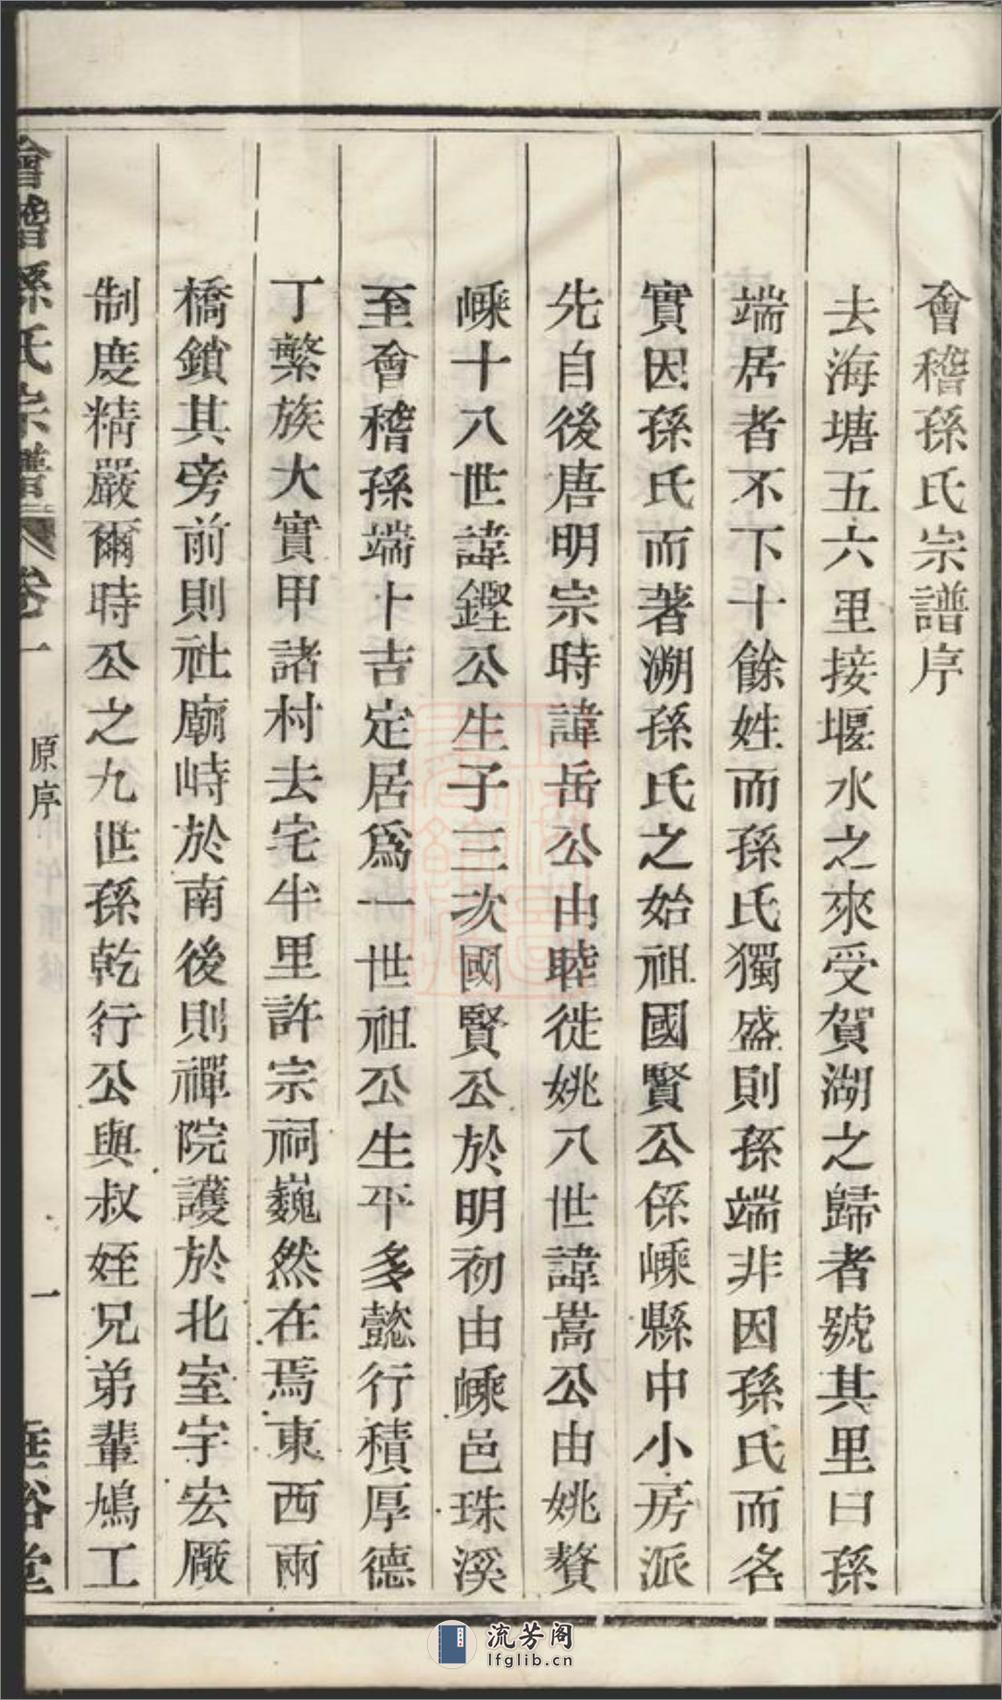 會稽孫氏宗譜序
去海塘五六里接堰水之來受賀湖之歸者號其里曰孫
端居者不下十餘姓而孫氏獨盛則孫端非因孫氏而名
實因孫氏而著溯孫氏之始祖國賢公係嵊縣中小房派
先自後唐明宗時諱岳公由睦徙姚八世諱嵩公由姚贅
嵊十八世諱鏗公生子三次國賢公於明初由嵊邑珠溪
至會稽孫端卜吉定居爲一世祖公生平多懿行積厚德
丁繁族大實甲諸村去宅半里許宗祠巍然在焉東西兩
橋鎖其旁前則社廟峙於南後則禪院護於北室宇宏厰
制度精嚴爾時公之九世孫乾行公與叔姪兄弟輩鳩工
會稽孫氏宗譜 卷一 原序 一 垂裕堂
流芳阁
lfglib.cn